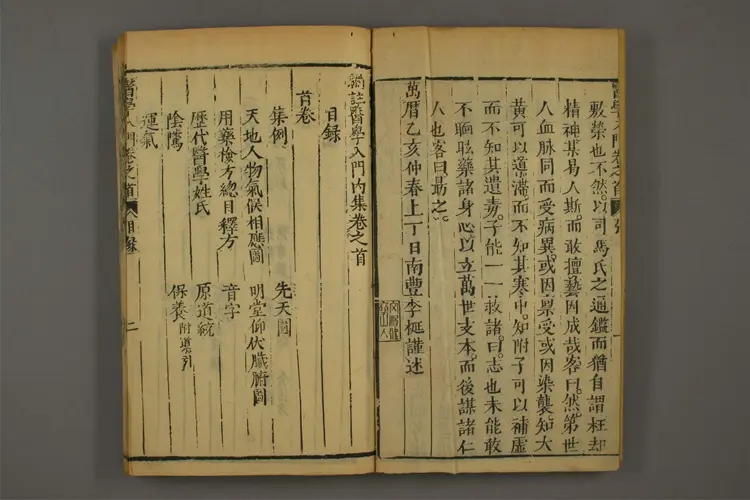 敷槩也不然以司馬氏之通鑑而猶自謂枉却
精神某易人斯而敢擅藝因成哉客曰然第世
人血脉同而受病異或因禀受或因染襲知大
黃可以導滯而不知其寒中知附子可以補虛
而不知其遺毒子能一一救諸曰志也未能敢
不瞑眩藥諸身心以立萬世之本而後謀諸仁
人也客曰勗之
萬曆乙亥仲春上丁日南豐李梴謹述
醫學入門卷之首
編註醫學入門內集卷之首
目錄
首卷
集例 先天圖
天地人物氣候相應圖 明堂仰伏臟腑圖
用藥檢方總目釋方 音字
歷代醫學姓氏 原道統
陰隲 保養附導引
運氣
醫學入門卷之首 目錄 二